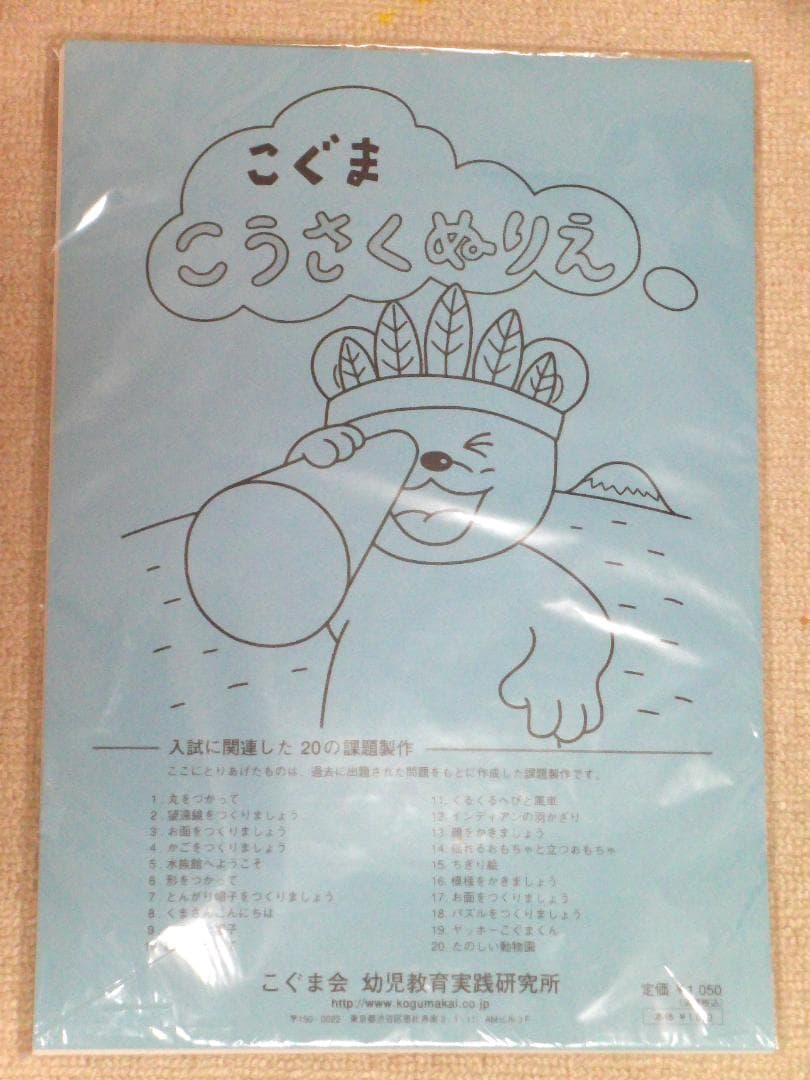 こぐま
こうさくぬりえ
入試に関連した 20の課題製作
ここにとりあげたものは、過去に出題された問題をもとに作成した課題製作です。
1. 丸をつかって
2. 望遠鏡をつくりましょう
3. お面をつくりましょう
4. かごをつくりましょう
5. 水族館へようこそ
6. 形をつかって
7. とんがり帽子をつくりましょう
8. くまさんこんにちは
9.
11. くるくるへびと風車
12. インディアンの羽かざり
13. 顔をかきましょう
14. 揺れるおもちゃと立つおもちゃ
15. ちぎり絵
16. 模様をかきましょう
17. お面をつくりましょう
18. パズルをつくりましょう
19. ヤッホーこぐまくん
20. たのしい動物園
こぐま会 幼児教育実践研究所
http://www.kogumakai.co.jp
〒150-0022 東京都渋谷区恵比寿南
定価 ¥1,050